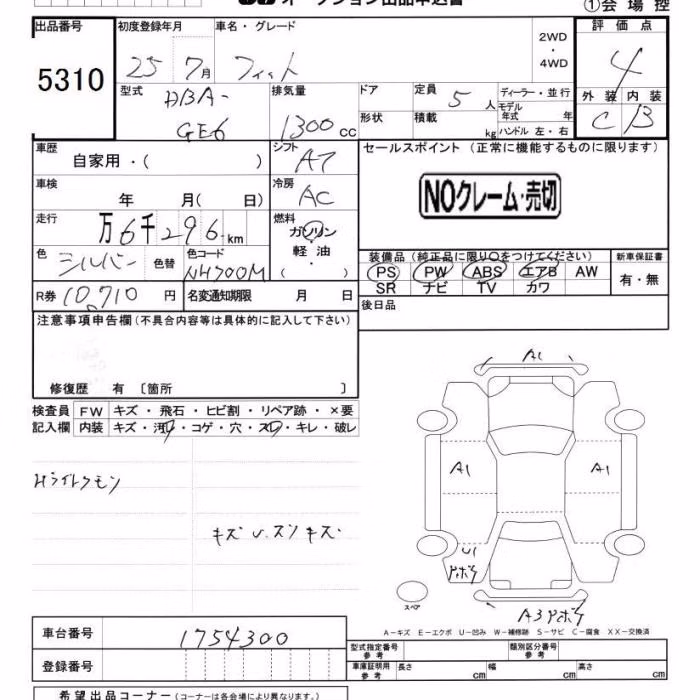 オークション出品申込書
①会場控
出品番号 5310
初度登録年月 25 7月
車名・グレード フィット
2WD・4WD
評価点 4
外装 C 内装 B
型式 DBA-GE6
排気量 1300cc
ドア
形状
定員 5人
積載 kg
ディーラー・並行
モデル年式 年
ハンドル 左・右
車歴 自家用・( )
シフト AT
車検 年 月( 日)
冷房 AC
走行 万6千296km
燃料 ガソリン 軽油・( )
色 シルバー 色替
色コード NH700M
R券 10,710円
名変通知期限 月 日
セールスポイント(正常に機能するものに限ります)
NOクレーム・売切
装備品(純正品に限り○をつけてください)
PS PW ABS エアB AW
SR ナビ TV カワ
新車保証書 有・無
後日品
注意事項申告欄(不具合内容等は具体的に記入して下さい)
修復歴 有〔箇所 〕
検査員記入欄
FW キズ・飛石・ヒビ割・リペア跡・×要
内装 キズ・汚レ・コゲ・穴・スレ・キレ・破レ
Hライトクモン
キズ
A1
A1
A1
U1
アトボケ
A3アトボケ
スペア
A-キズ E-エクボ U-凹み W-補修跡 S-サビ C-腐食 XX-交換済
車台番号 1754300
登録番号
型式指定番号 参考
類別区分番号 参考
車庫証明用 参考 長さ cm 幅 cm 高さ cm
希望出品コーナー(コーナーは各会場により異なります。)